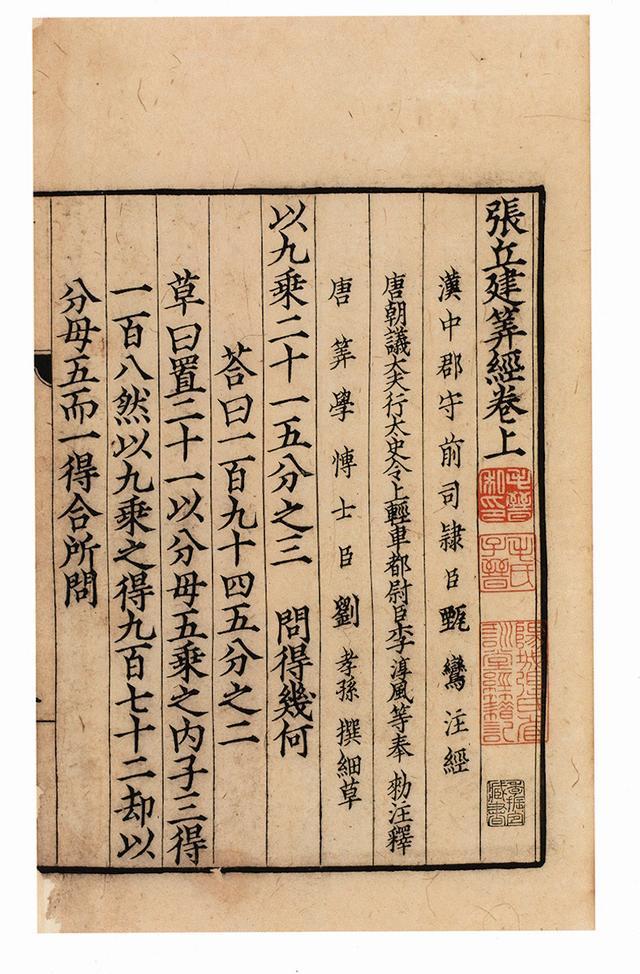 張丘建筭經卷上
漢中郡守前司隷臣甄鸞注經
唐朝議大夫行太史令上輕車都尉臣李淳風等奉勑注釋
唐筭學博士臣劉孝孫撰細草
以九乘二十一五分之三 問得幾何
荅曰一百九十四五分之二
草曰置二十一以分母五乘之内子三得
一百八然以九乘之得九百七十二却以
分母五而一得合所問
毛晉
毛氏
子晉